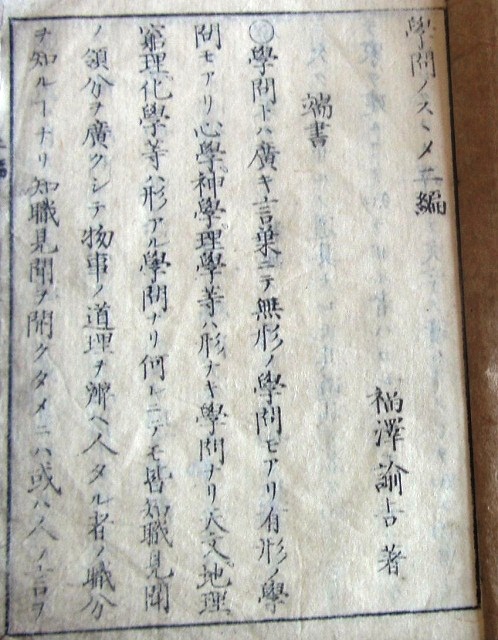 學問ノスヽメ二編
福澤諭吉著
端書
學問トハ廣キ言葉ニテ無形ノ學問モアリ有形ノ學
問モアリ心學神學理學等ハ形ナキ學問ナリ天文地理
窮理化學等ハ形アル學問ナリ何レニテモ皆知職見聞
ノ領分ヲ廣クシテ物事ノ道理ヲ辨ヘ人タル者ノ職分
ヲ知ルヿナリ知職見聞ヲ開クタメニハ或ハ人ノ言ヲ